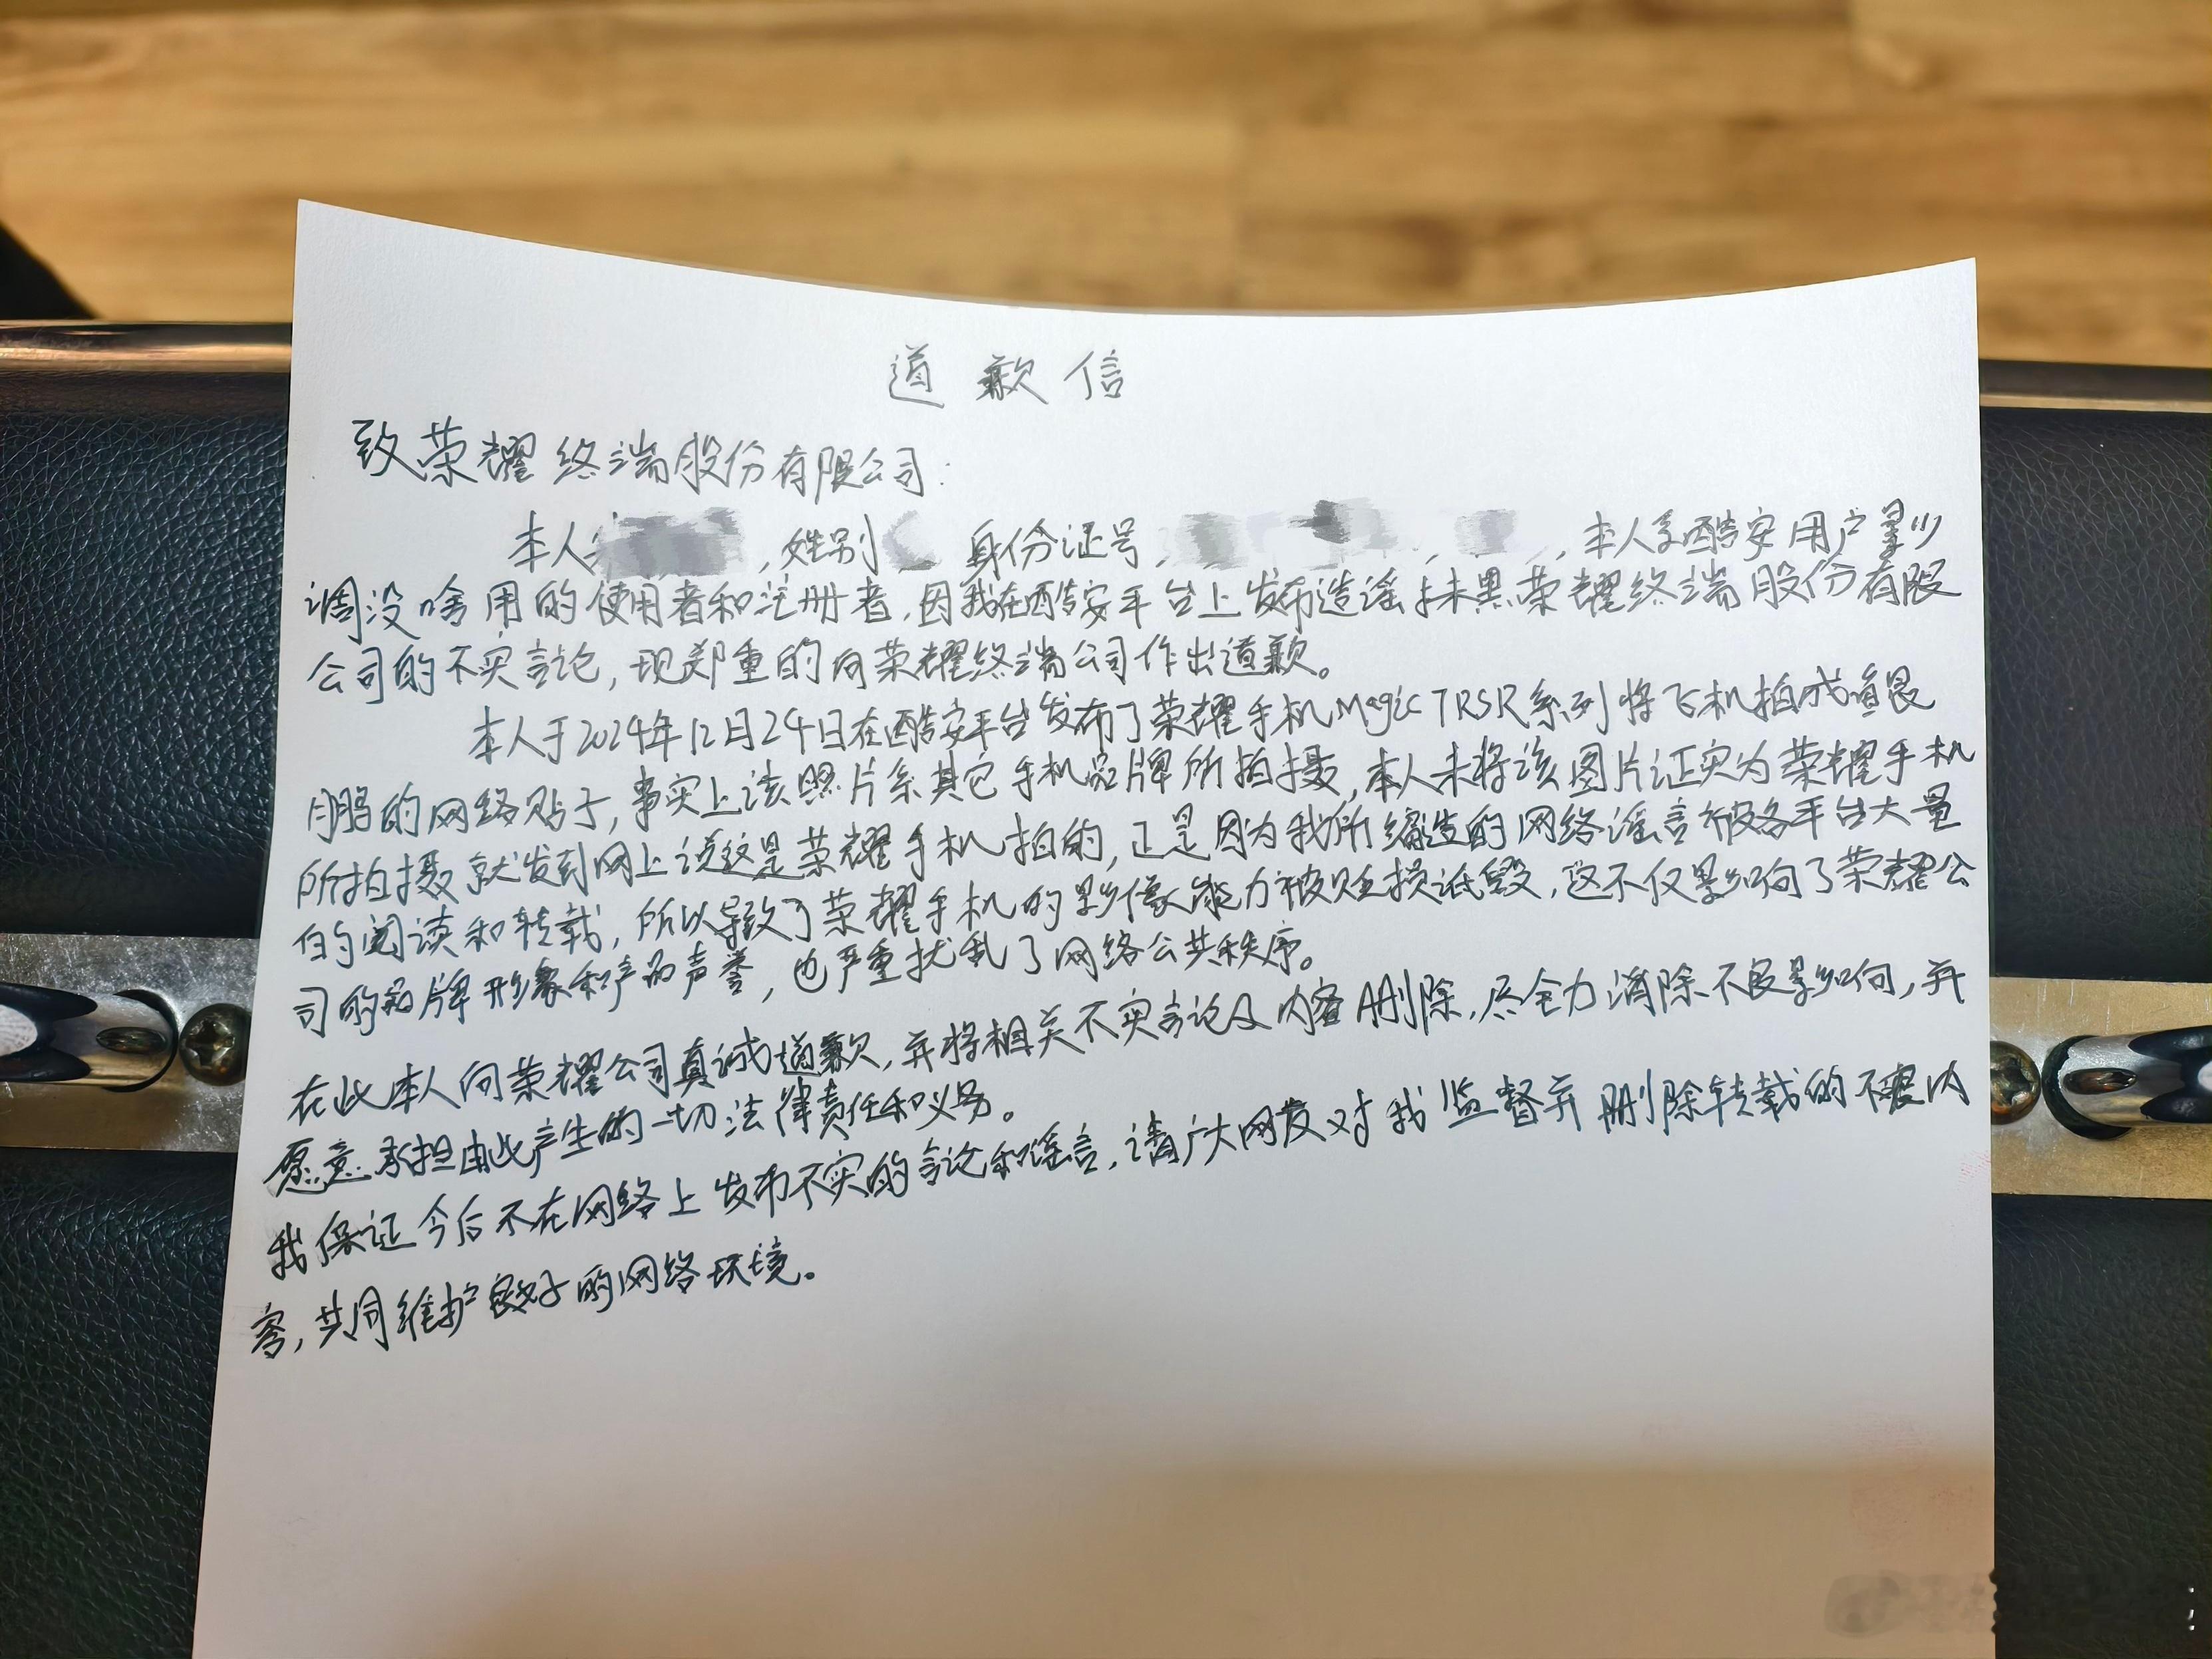 道歉信
致荣耀终端股份有限公司:
本人 ,姓别 身份证号, , ,本人系酷安用户影
调没啥用的使用者和注册者,因我在酷安平台上发布造谣抹黑荣耀终端股份有限
公司的不实言论,现郑重的向荣耀终端公司作出道歉。
本人于2024年12月24日在酷安平台发布了荣耀手机Magic7RSR系列将飞机拍成
鹏的网络贴子,事实上该照片系其它手机品牌所拍摄,本人未将该图片证实为荣耀手机
所拍摄就发到网上说这是荣耀手机拍的,正是因为我所编造的网络谣言被各平台大量
的阅读和转载,所以导致了荣耀手机的影像能力被贬损诋毁,这不仅影响了荣耀公
司的品牌形象和产品声誉,也严重扰乱了网络公共秩序。
在此本人向荣耀公司真诚道歉,并将相关不实言论及内容删除,尽全力消除不良影响,并
愿意承担由此产生的一切法律责任和义务。
我保证今后不在网络上发布不实的言论和谣言,请广大网友对我监督并删除转载的不实内
容,共同维护良好的网络环境。